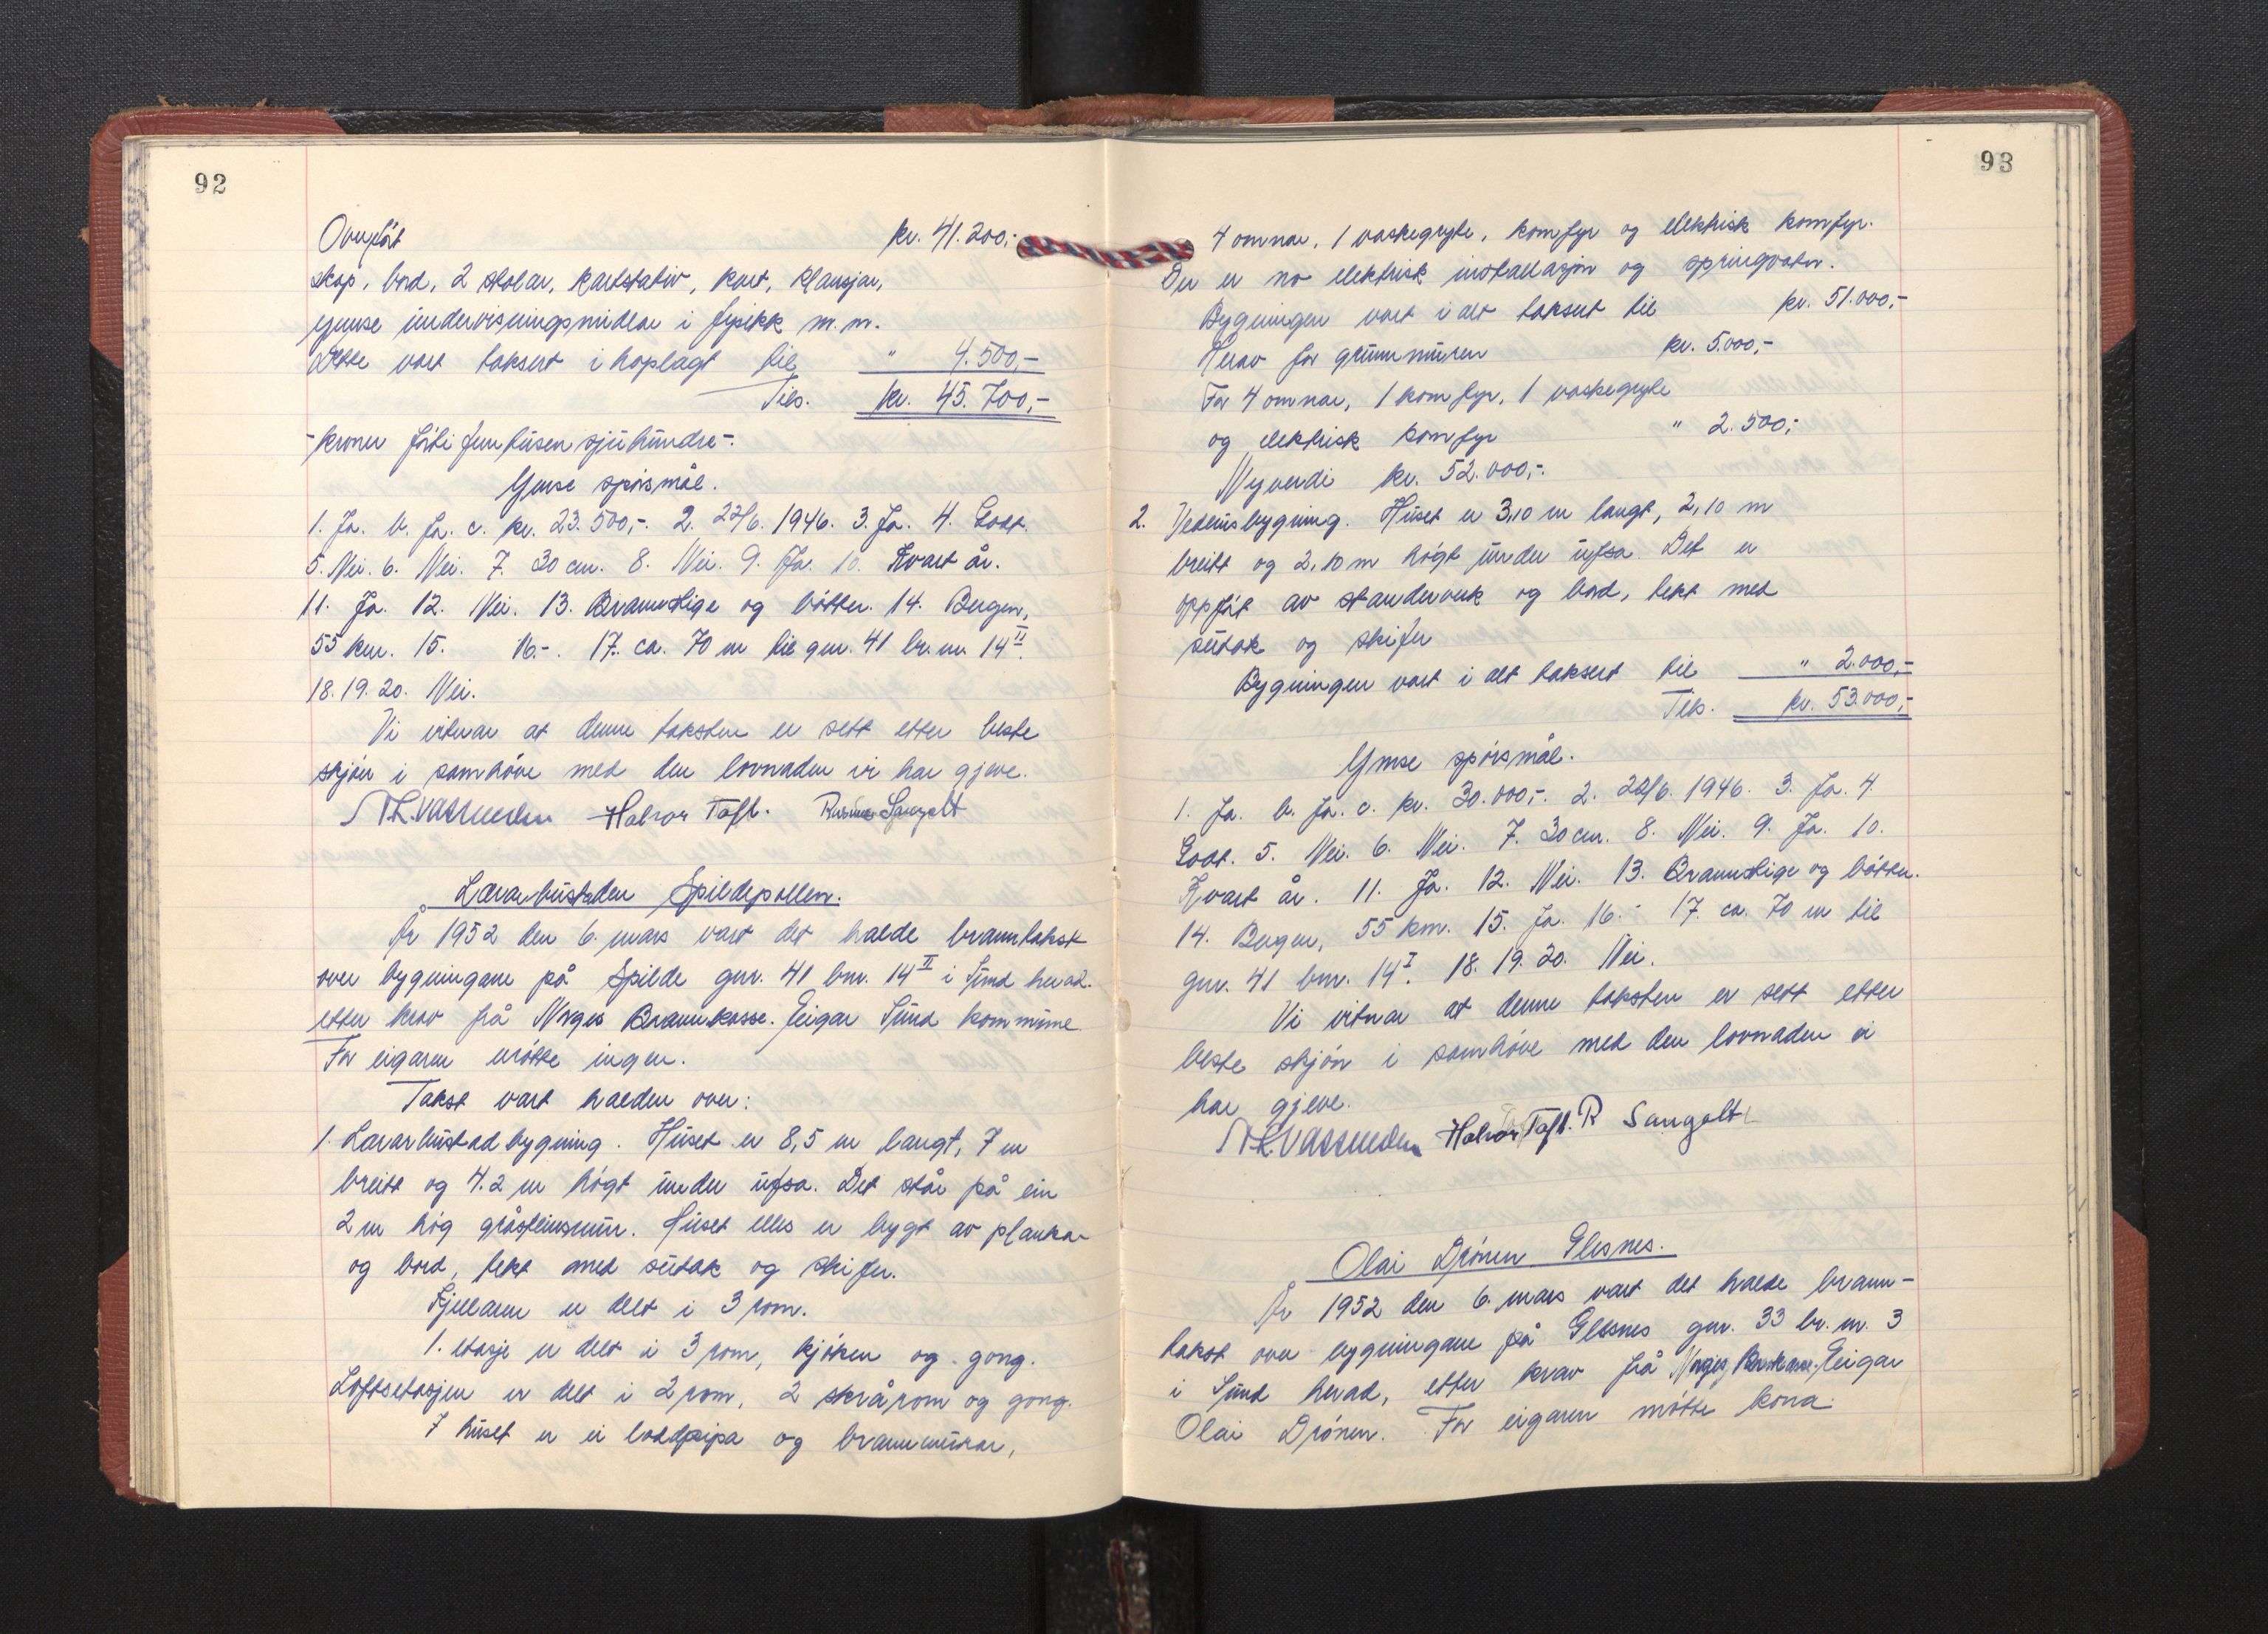 92
Overført kr. 41.200,-
skap, bord, 2 stolar, kartstativ, kart, plansjar,
ymse undervisningsmidlar i fysikk m.m.
Dette vart taksert i hoplagt til " 4.500,-
Tils. kr. 45.700,-
- kroner førti fem tusen sju hundre -.
Ymse spørsmål.
1. Ja. b. Ja. c. kr. 23.500,-. 2. 22/6. 1946. 3. Ja. 4. Godt.
5. Nei. 6. Nei. 7. 30 cm. 8. Nei. 9. Ja. 10. Kvart år.
11. Ja. 12. Nei. 13. Brannstige og bøtter. 14. Bergen,
55 km. 15. 16. -. 17. ca. 70 m til gnr. 41 br. nr. 14 II.
18. 19. 20. Nei.
Vi vitnar at denne taksten er sett etter beste
skjøn i samhøve med den lovnaden vi har gjeve.
Halvor Toft. Rasmus Sangolt
Lærarbustaden Spildepollen.
År 1952 den 6. mars vart det halde branntakst
over bygningane på Spilde gnr. 41 bnr. 14 II i Sund herad.
etter krav frå Norges Brannkasse. Eigar Sund kommune
For eigaren møtte ingen.
Takst vart halden over:
1. Lærarbustad bygning. Huset er 8,5 m langt, 7 m
breitt og 4.2 m høgt under ufsa. Det står på ein
2 m høg gråsteinsmur. Huset elles er bygt av plankar
og bord, tekt med sutak og skifer.
Kjellaren er delt i 3 rom.
1. etasje er delt i 3 rom, kjøken og gong.
Loftsetasjen er delt i 2 rom, 2 skrårom og gong.
I huset er ei loddpipa og brannmurar,
93
4 omnar, 1 vaskegryte, komfyr og elektrisk komfyr.
Der er no elektrisk installasjon og springvatn.
Bygningen vart i alt taksert til kr. 51.000,-
Herav for grunnmuren kr. 5.000,-
For 4 omnar, 1 komfyr, 1 vaskegryte
og elektrisk komfyr " 2.500,-
Nyverdi kr. 52.000,-.
2. Vedhusbygning. Huset er 3,10 m langt, 2,10 m
breitt og 2,10 m høgt under ufsa. Det er
oppført av standerverk og bord, tekt med
sutak og skifer
Bygningen vart i alt taksert til " 2.000,-
Tils. kr. 53.000,-
Ymse spørsmål.
1. Ja. b. Ja. c. kr. 30.000,-. 2. 22/6. 1946. 3. Ja. 4.
Godt. 5. Nei. 6. Nei. 7. 30 cm. 8. Nei. 9. Ja. 10.
Kvart år. 11. Ja. 12. Nei. 13. Brannstige og bøtter.
14. Bergen, 55 km. 15. Ja. 16. - 17. ca. 70 m til
gnr. 41 bnr. 14 I. 18. 19. 20. Nei.
Vi vitnar at denne taksten er sett etter
beste skjøn i samhøve med den lovnaden vi
har gjeve.
Halvor Toft. R Sangolt
Olai Drønen Glesnes.
År 1952 den 6. mars vart det halde brann-
takst over bygningane på Glesnes gnr. 33 br. nr. 3
i Sund herad, etter krav frå Norges Brannkasse. Eigar
Olai Drønen. For eigaren møtte kona.